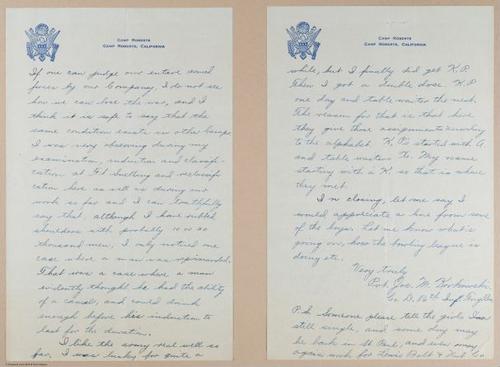 CAMP ROBERTS
CAMP ROBERTS, CALIFORNIA
If one can judge our entire armed
forces by our Company, I do not see
how we can lose the war, and I
think it is safe to say that the
same condition exists in other Camps
I was very observing during my
examination, induction and classifi-
cation at Ft. Snelling and reclassifi-
cation here as well as during our
work so far and I can truthfully
say that, although I have rubbed
shoulders with probably 10 or 20
thousand men, I only noticed one
case where a man was reprimanded.
That was a case where a man
evidently thought he had the ability
of a camel, and could drink
enough before his induction to
last for the duration.
I like the army real well so
far, I was lucky for quite a
CAMP ROBERTS
CAMP ROBERTS, CALIFORNIA
while, but I finally did get K.P.
Then I got a double dose. K.P.
one day and table waiter the next.
The reason for that is that here
they give those assignments according
to the alphabet. K.P. started with A.
and table waiters My name
starting with a K. so that is where
they met.
In closing, let me say I
would appreciate a line from some
of the boys. Let me know what's
going on, how the bowling league is
doing etc.
Very truly
Pvt. Jos. M.
Co D, 82th Inf.
P.S. Someone please tell the girls I'm
still single, and some day may
be back in St Paul, and even may
again work for Lewis Bolt & Nut Co